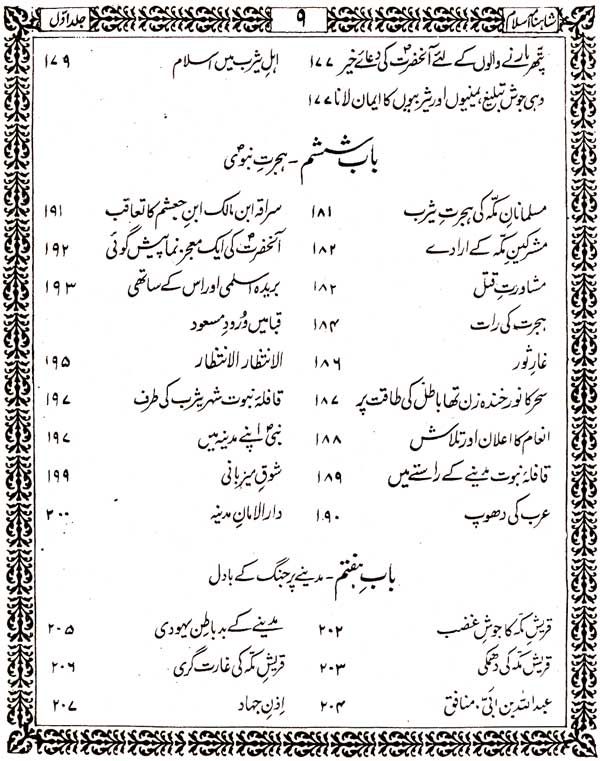 شاہنامۂ اسلام ۹ جلد اوّل
پتھر مارنے والوں کے لئے آنحضرتؐ کی دعائے خیر ۱۷۷
وہی جوشِ تبلیغ، یمنیوں اور یثربیوں کا ایمان لانا ۱۷۷
اہلِ یثرب میں اسلام ۱۷۹
بابِ ششم - ہجرتِ نبویؐ
مسلمانانِ مکّہ کی ہجرتِ یثرب ۱۸۱
مشرکینِ مکّہ کے ارادے ۱۸۲
مشاورتِ قتل ۱۸۲
ہجرت کی رات ۱۸۴
غارِ ثور ۱۸۶
سحر کا نور خندہ زن تھا باطل کی طاقت پر ۱۸۷
انعام کا اعلان اور تلاش ۱۸۸
قافلۂ نبوت مدینے کے راستے میں ۱۸۹
عرب کی دھوپ ۱۹۰
سراقہ ابن مالک ابنِ جعشم کا تعاقب ۱۹۱
آنحضرتؐ کی ایک معجز نما پیش گوئی ۱۹۲
بریدہ اسلمی اور اس کے ساتھی ۱۹۳
قبا میں وُرودِ مسعود
الانتظار الانتظار ۱۹۵
قافلۂ نبوت شہرِ یثرب کی طرف ۱۹۷
نبیؐ اپنے مدینہ میں ۱۹۷
شوقِ میزبانی ۱۹۹
دار الامانِ مدینہ ۲۰۰
بابِ ہفتم - مدینے پر جنگ کے بادل
قریشِ مکّہ کا جوشِ غضب ۲۰۲
قریشِ مکّہ کی دھمکی ۲۰۳
عبداللہ بن اُبَیّ - منافق ۲۰۴
مدینے کے بد باطن یہودی ۲۰۵
قریشِ مکّہ کی غارت گری ۲۰۶
اِذنِ جہاد ۲۰۷